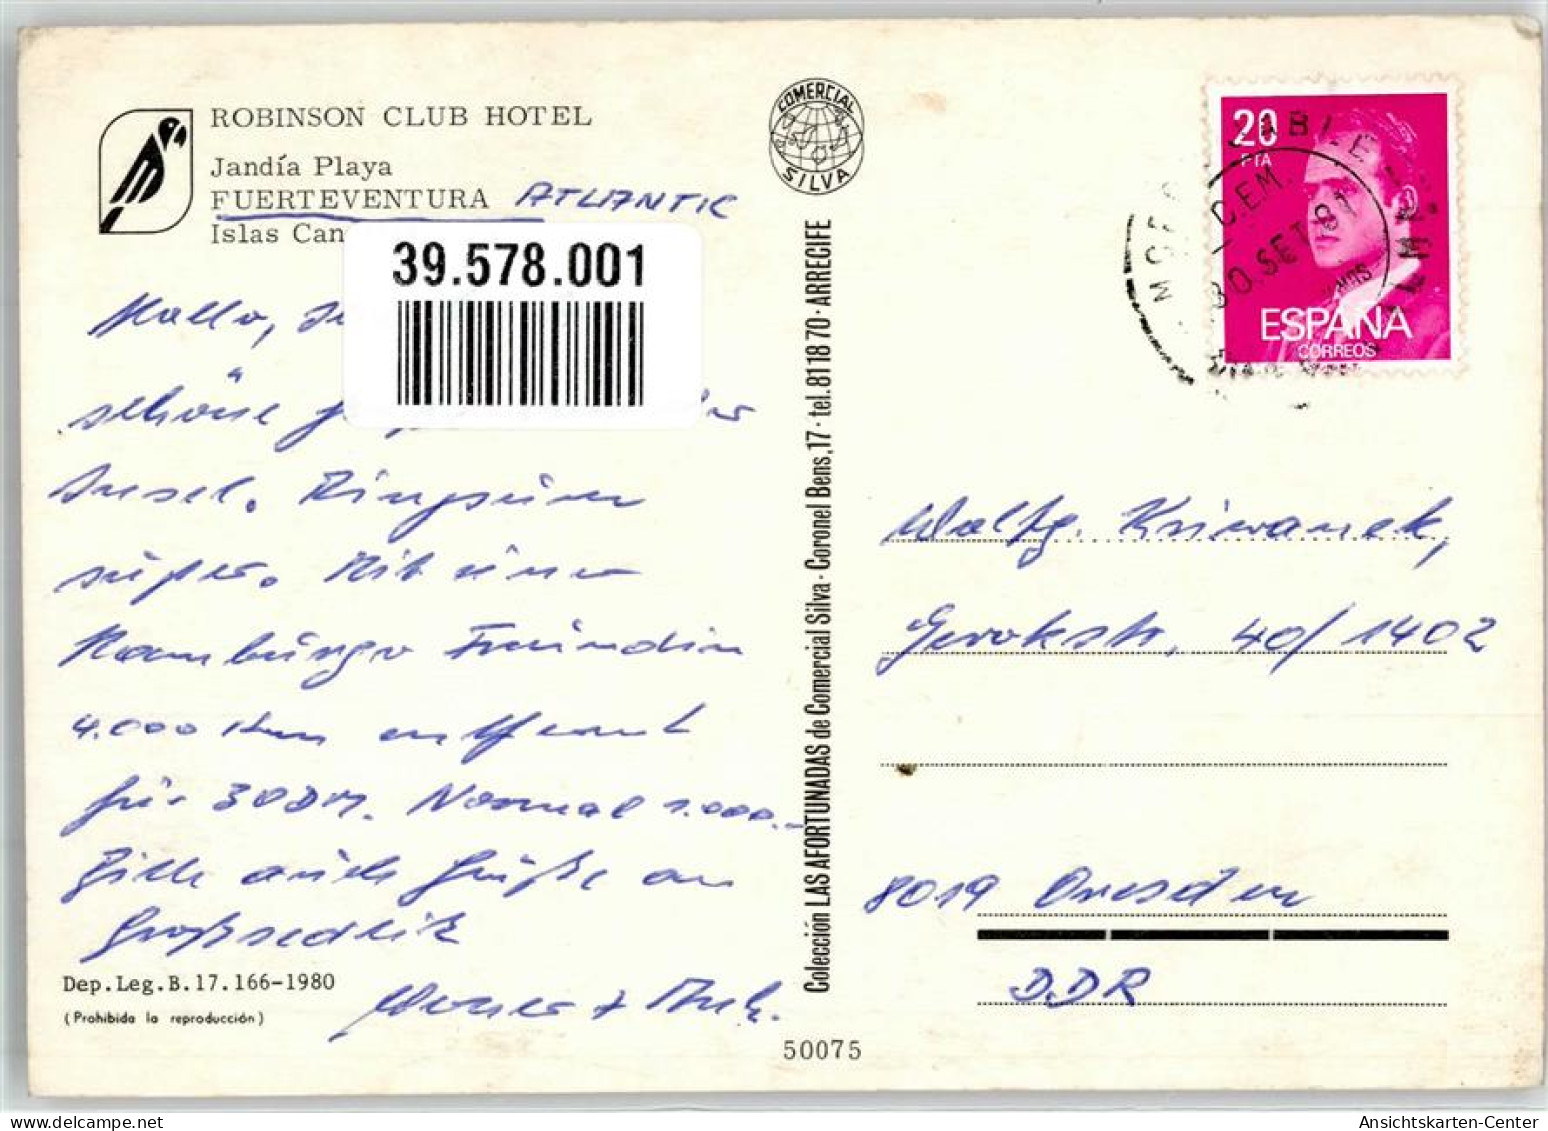 ROBINSON CLUB HOTEL
Jandía Playa
FUERTEVENTURA ATLANTIC
Islas Can
39.578.001
Hallo,
schöne
Insel. Ringsum
super. Mit einer
Hamburger Freundin
4.000 km entfernt
für 30 DM. Normal 1.000.-
Bitte auch Grüße an
Großsedlitz
Werner +
Dep.Leg.B.17.166-1980
(Prohibida la reproducción)
COMERCIAL
SILVA
Colección LAS AFORTUNADAS de Comercial Silva · Coronel Bens,17 · tel. 81 18 70 · ARRECIFE
50075
20
PTA
ESPAÑA
CORREOS
30.SET.81
Wolfg. Kriwanek,
Gerokstr. 40/1402
8019 Dresden
DDR
Ansichtskarten-Center